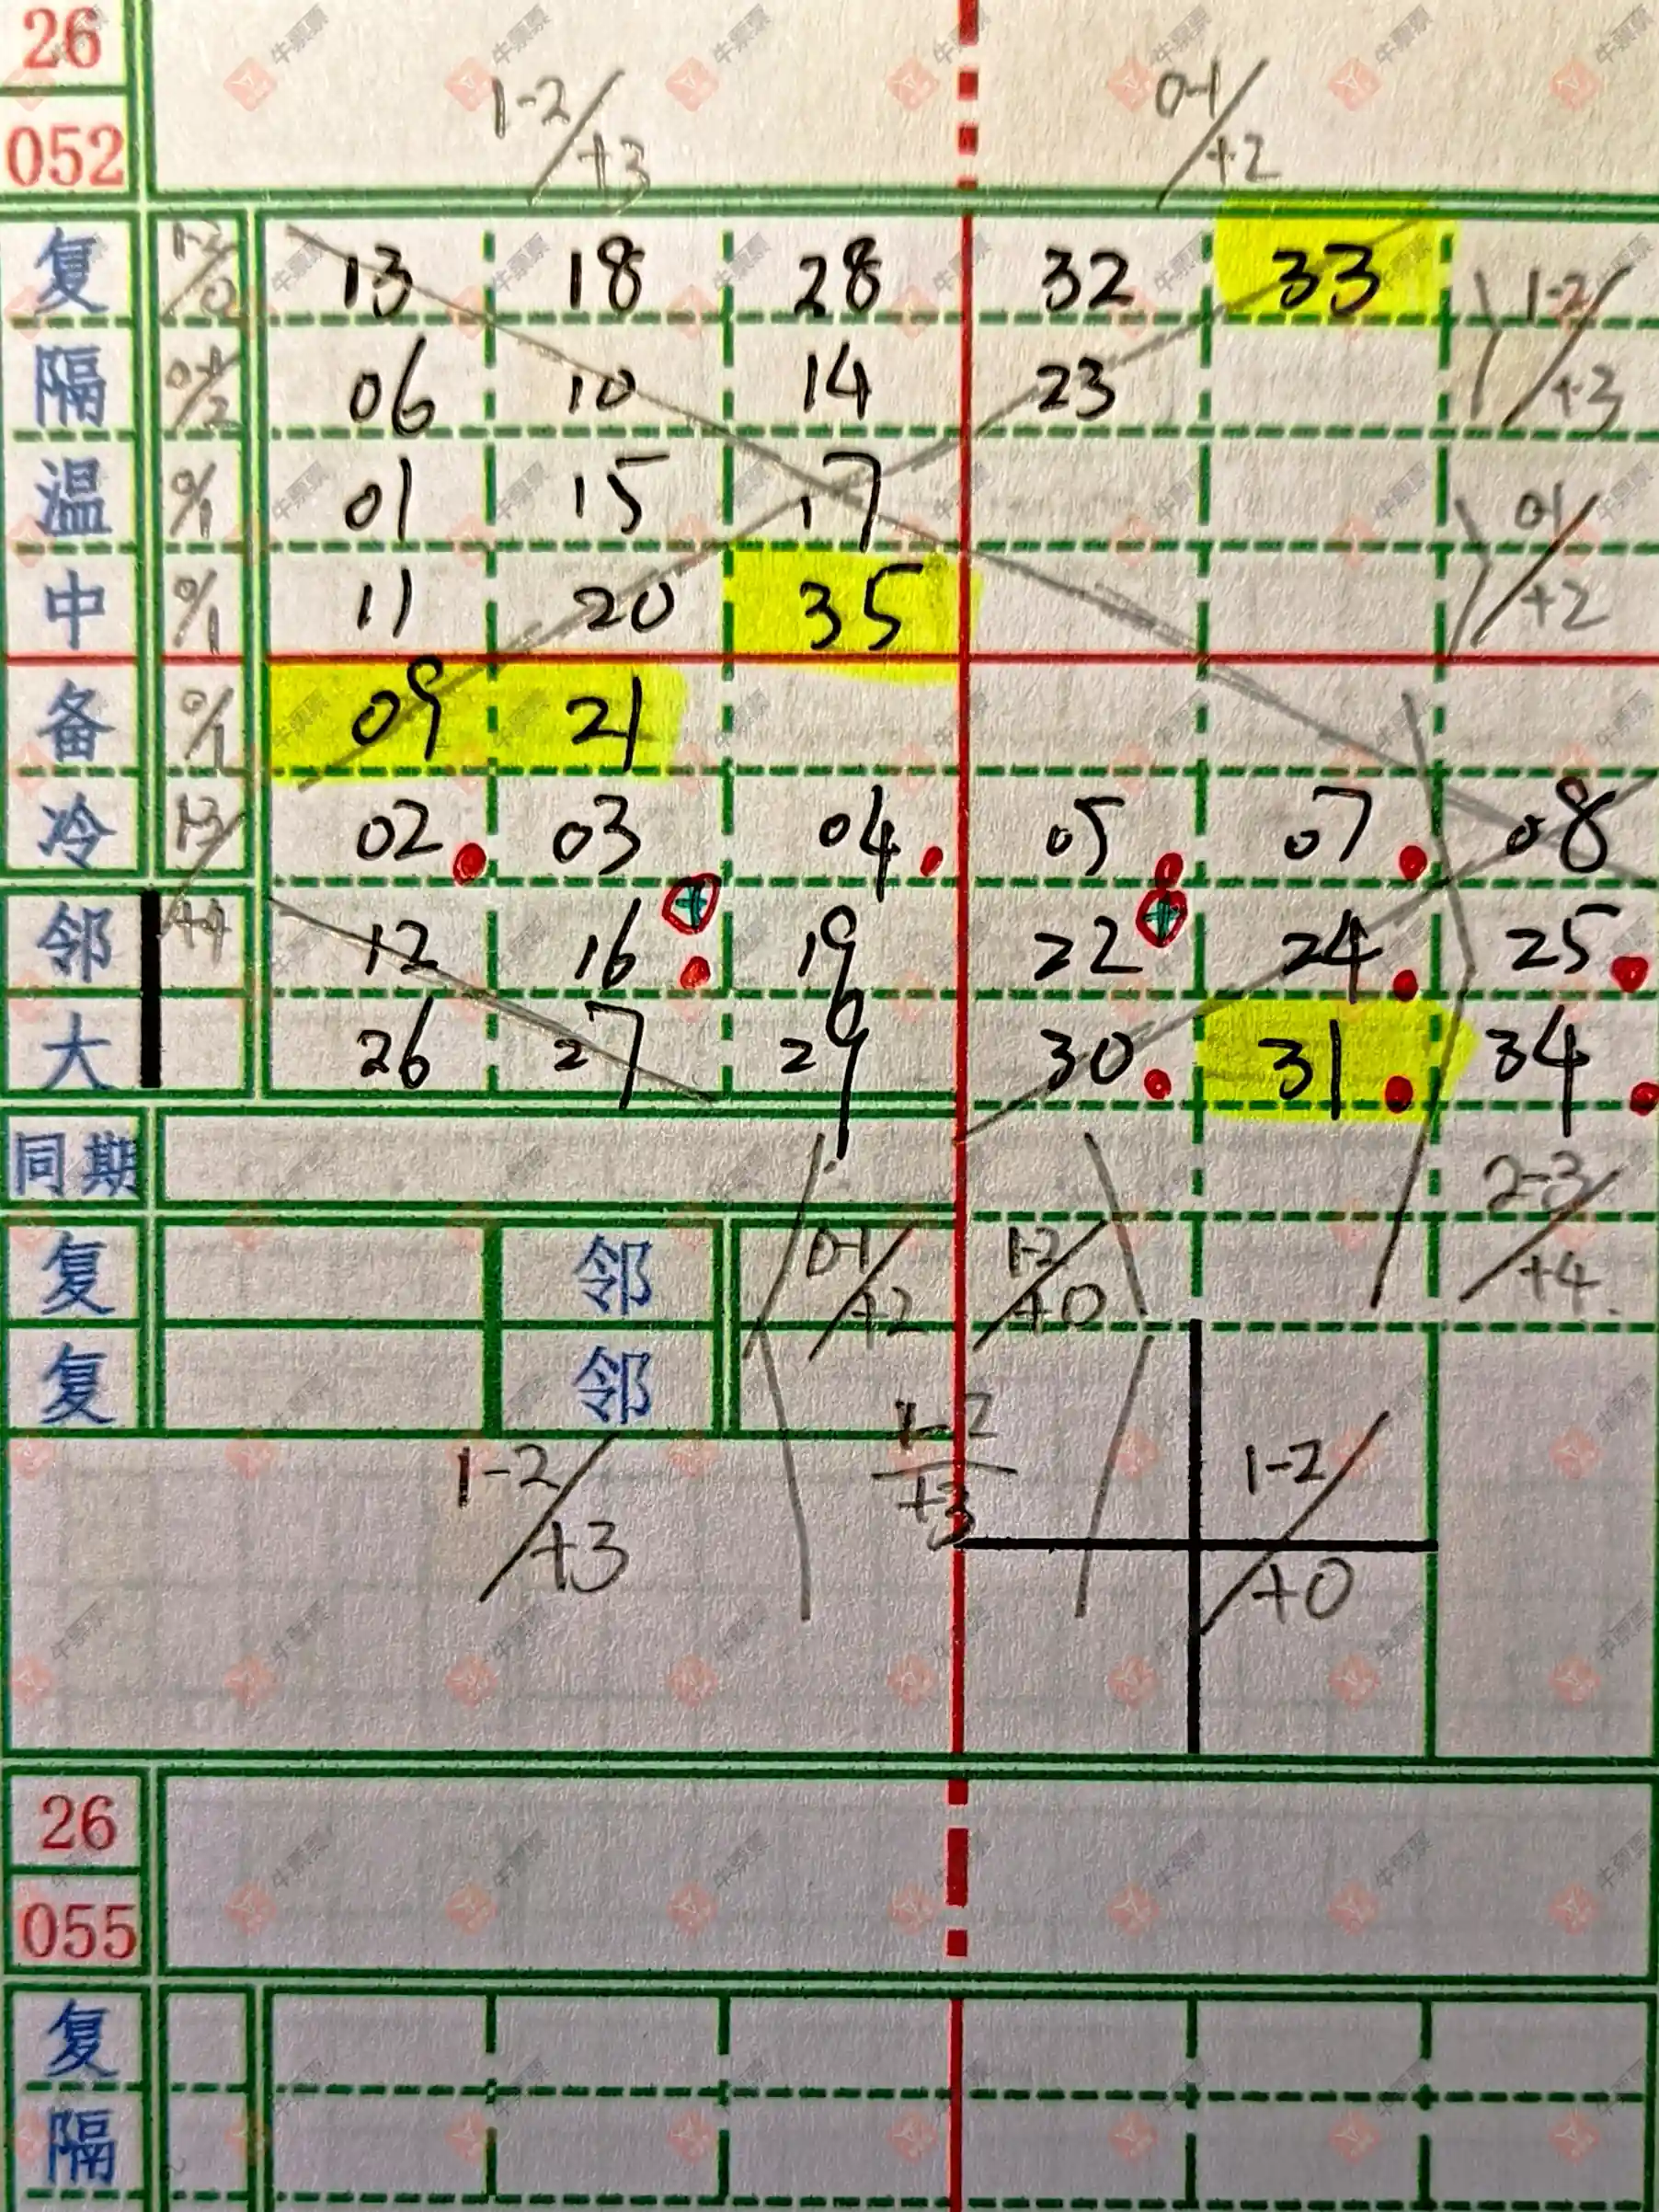 26
052
1-2/+3 0-1/+2
复 1-2/0 13 18 28 32 33 1-2/+3
隔 0-1/2 06 10 14 23
温 0/1 01 15 17 0-1/+2
中 0/1 11 20 35
备 0/1 09 21
冷 1-3/ 02 03 04 05 07 08
邻 +4 12 16 19 22 24 25
大 26 27 29 30 31 34
同期 2-3/+4
复 邻 0-1/+2 1-2/+0
复 邻 1-2/+3
1-2/+3 1-2/+0
26
055
复
隔
牛票票